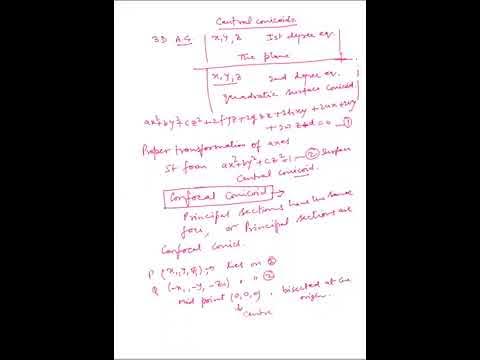 Central conicoids
3D A.G | x, y, z Ist degree eq.
The plane
x, y, z 2nd degree eq.
quadratic surface conicoid
ax²+by²+cz²+2fyz+2gzx+2hxy+2ux+2vy
+2wz+d=0 —①
Proper transformation of axes
St form ax²+by²+cz²=1 —② Surface
Central conicoid.
Confocal Conicoid →
Principal sections have the same
foci, or Principal sections are
Confocal Conics.
P (x₁, y₁, z₁) lies on ②
Q (-x₁, -y₁, -z₁) " " ②
mid point (0,0,0) , bisected at the
↓ origin.
Centre